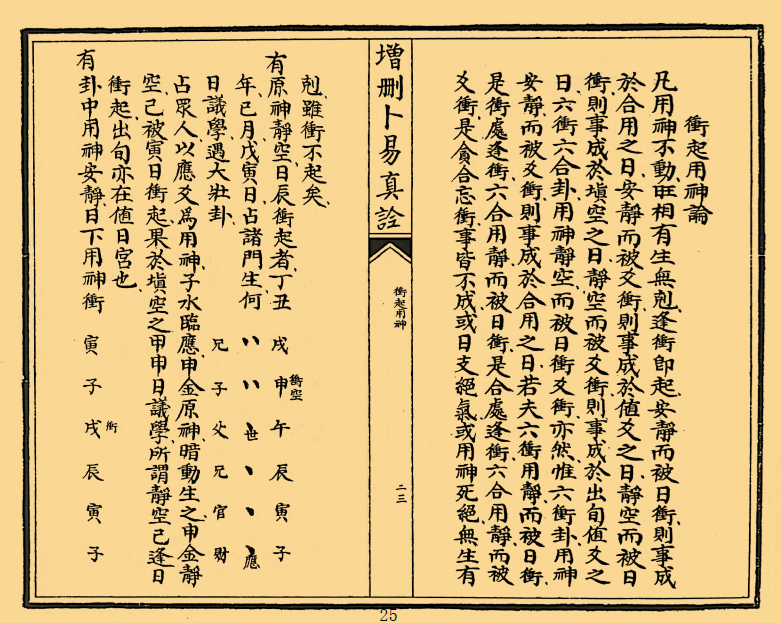 衝起用神論
凡用神不動旺相有生無剋逢衝即起安靜而被日衝則事成
於合用之日安靜而被爻衝則事成於值爻之日靜空而被日
衝則事成於塡空之日靜空而被爻衝則事成於出旬值爻之
日六衝六合卦用神靜空而被日衝爻衝亦然惟六衝卦用神
安靜而被爻衝則事成於合用之日若夫六衝用靜而被日衝
是衝處逢衝六合用靜而被日衝是合處逢衝六合用靜而被
爻衝是貪合忘衝事皆不成或日支絕氣或用神死絕無生有
增刪卜易真詮
衝起用神
二三
剋雖衝不起矣
有原神靜空日辰衝起者丁丑
年巳月戊寅日占諸門生何
日議學遇大壯卦
戌 申 午 辰 寅 子
衝空
、、 、、 、 、 、 、
世 應
兄 子 父 兄 官 財
占眾人以應爻為用神子水臨應申金原神暗動生之申金靜
空已被寅日衝起果於塡空之甲申日議學所謂靜空已逢日
衝起出旬亦在值日宮也
有卦中用神安靜日下用神衝
寅 子 戌 辰 寅 子
衝
25